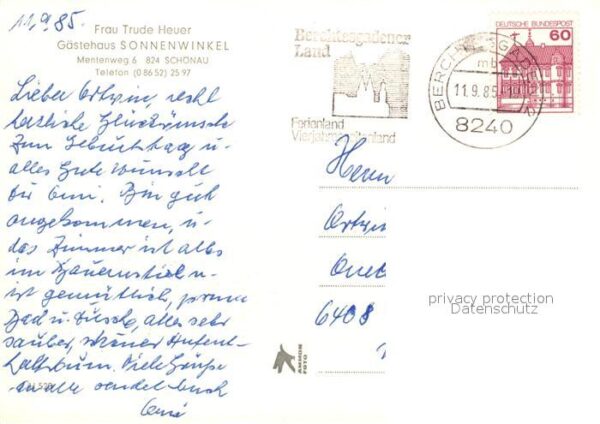 11.9.85.
Frau Trude Heuer
Gästehaus SONNENWINKEL
Mentenweg 6 824 SCHÖNAU
Telefon (0 86 52) 25 97
Lieber Ortwin, recht
herzliche Glückwünsche
zum Geburtstag u.
alles Gute wünscht
dir Omi. Bin gut
angekommen, u.
das Zimmer ist alles
im Bauernstiel u.
ist gemütlich, prima
Bad u. Dusche, alles sehr
sauber, schöner Aufent-
haltsraum. Viele Grüße
an alle
Omi
Berchtesgadener
Land
Ferienland
Vierjahreszeitenland
BERCHTESGADEN
mb
11.9.85
8240
DEUTSCHE BUNDESPOST
60
Herrn
Ortwin
6408
AMMON
FOTO
privacy protection
Datenschutz